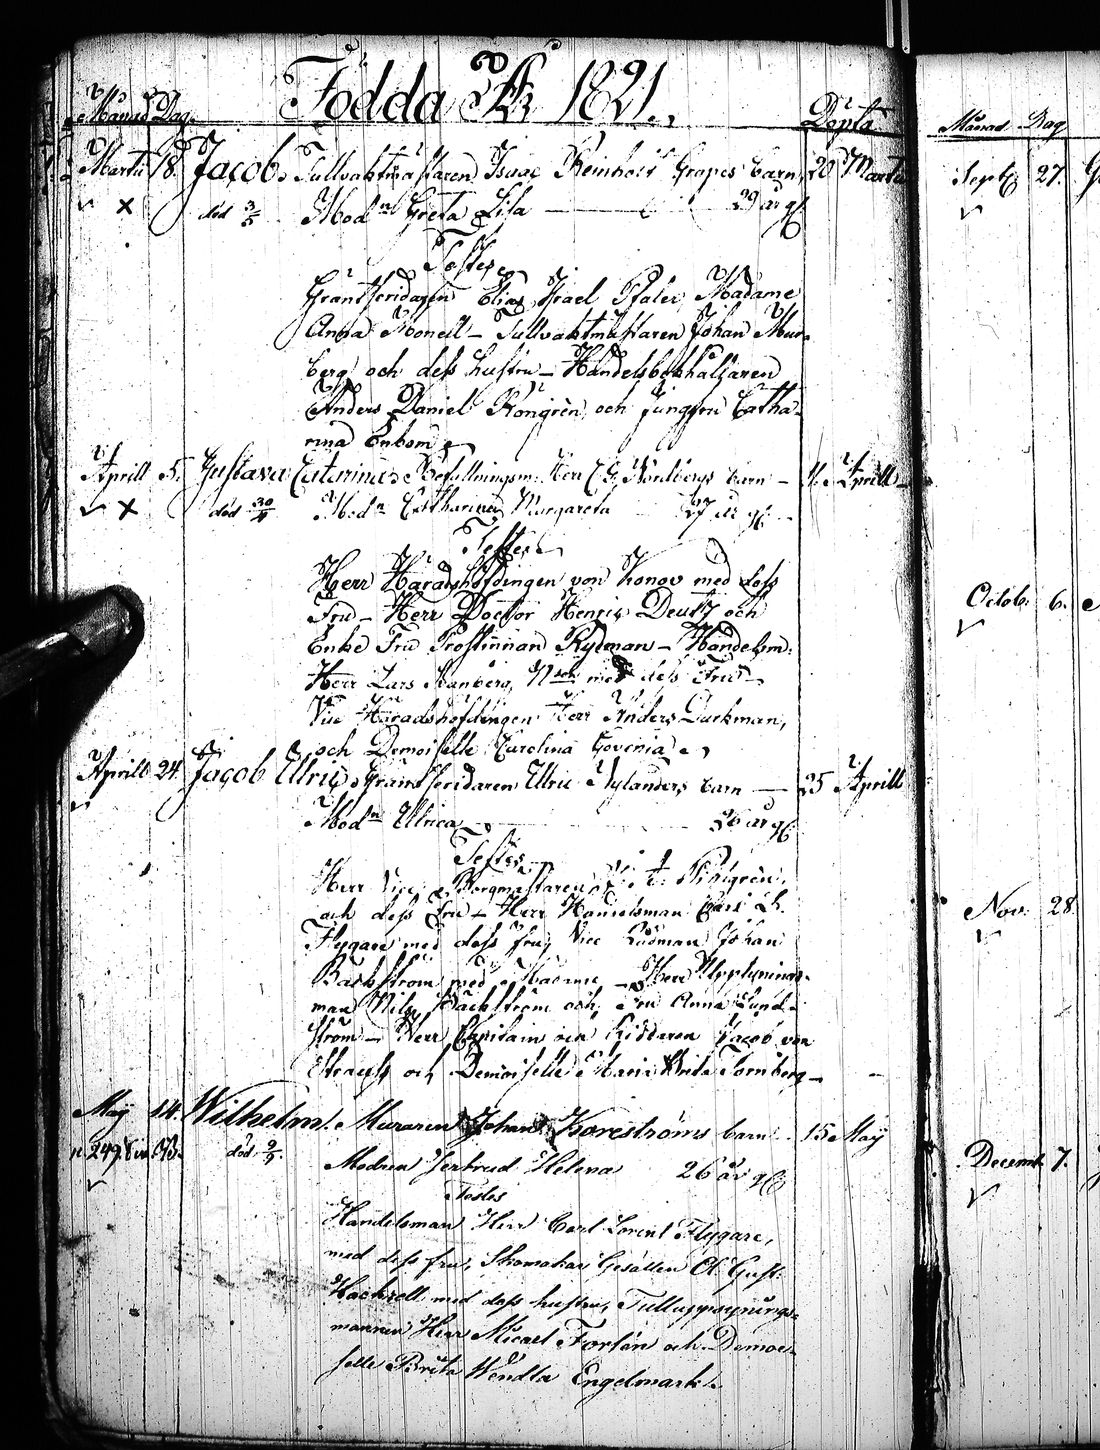 Födda År 1821.
Månad Dag. Döpta
Martii 18. Jacob. Tullvaktmästaren Isaac Reinholt Grapes barn 20 Martii
död 3/5 Modn Greta Lisa 29 år gl.
Testes
Gräntseridaren Elias Israel Pfaler, Madame
Anna Moneil - Tullvaktmästaren Johan Mur-
berg och dess hustru - Handelsbokhållaren
Anders Daniel Kongrén och Jungfru Catha-
rina Enbom
Aprill 5. Gustava Catarina. Befallningsm. Herr C. G. Nordbergs barn - 11. Aprill
död 30/4 Modn Catharina Margareta 27 år gl.
Testes
Herr Häradshöfdingen von Konov med dess
Fru - Herr Doctor Henric Deutz och
Enke Fru Prostinnan Rydman - Handelsm.
Herr Lars med dess Fru -
Vice Häradshöfdingen Herr Anders Durkman,
och Demoiselle Carolina Govenia
Aprill 24. Jacob Ullric. Gräntseridaren Ullric Nylanders barn - 25 Aprill
Modn Ullrica 36 år gl.
Testes
Herr Vice Borgmästaren
och dess Fru - Herr Handelsman Carl L.
Flygare med dess fru, Vice Rådman Johan
Bäckström med Madame - Herr Uppsynings-
man Nils Bäckström och Fru Anna Lund-
ström - Herr Capitain och Riddaren Jacob von
och Demoiselle Maria Brita Tornberg
Maij 14. Wilhelm. Muraren Johan Forsströms barn 15 Maij
död 9/7. Modren Gertrud Helena 26 år gl.
Testes
Handelsman Herr Carl Lorent Flygare,
med dess fru, Skomakare Gesällen Ol. Gust.
Hackzell med dess hustru, Tulluppsynings-
mannen Herr Micael Forsén och Demoi-
selle Brita Wendla Engelmark.
Månad Dag
Septb. 27.
Octob. 6.
Nov. 28
Decemb. 7.